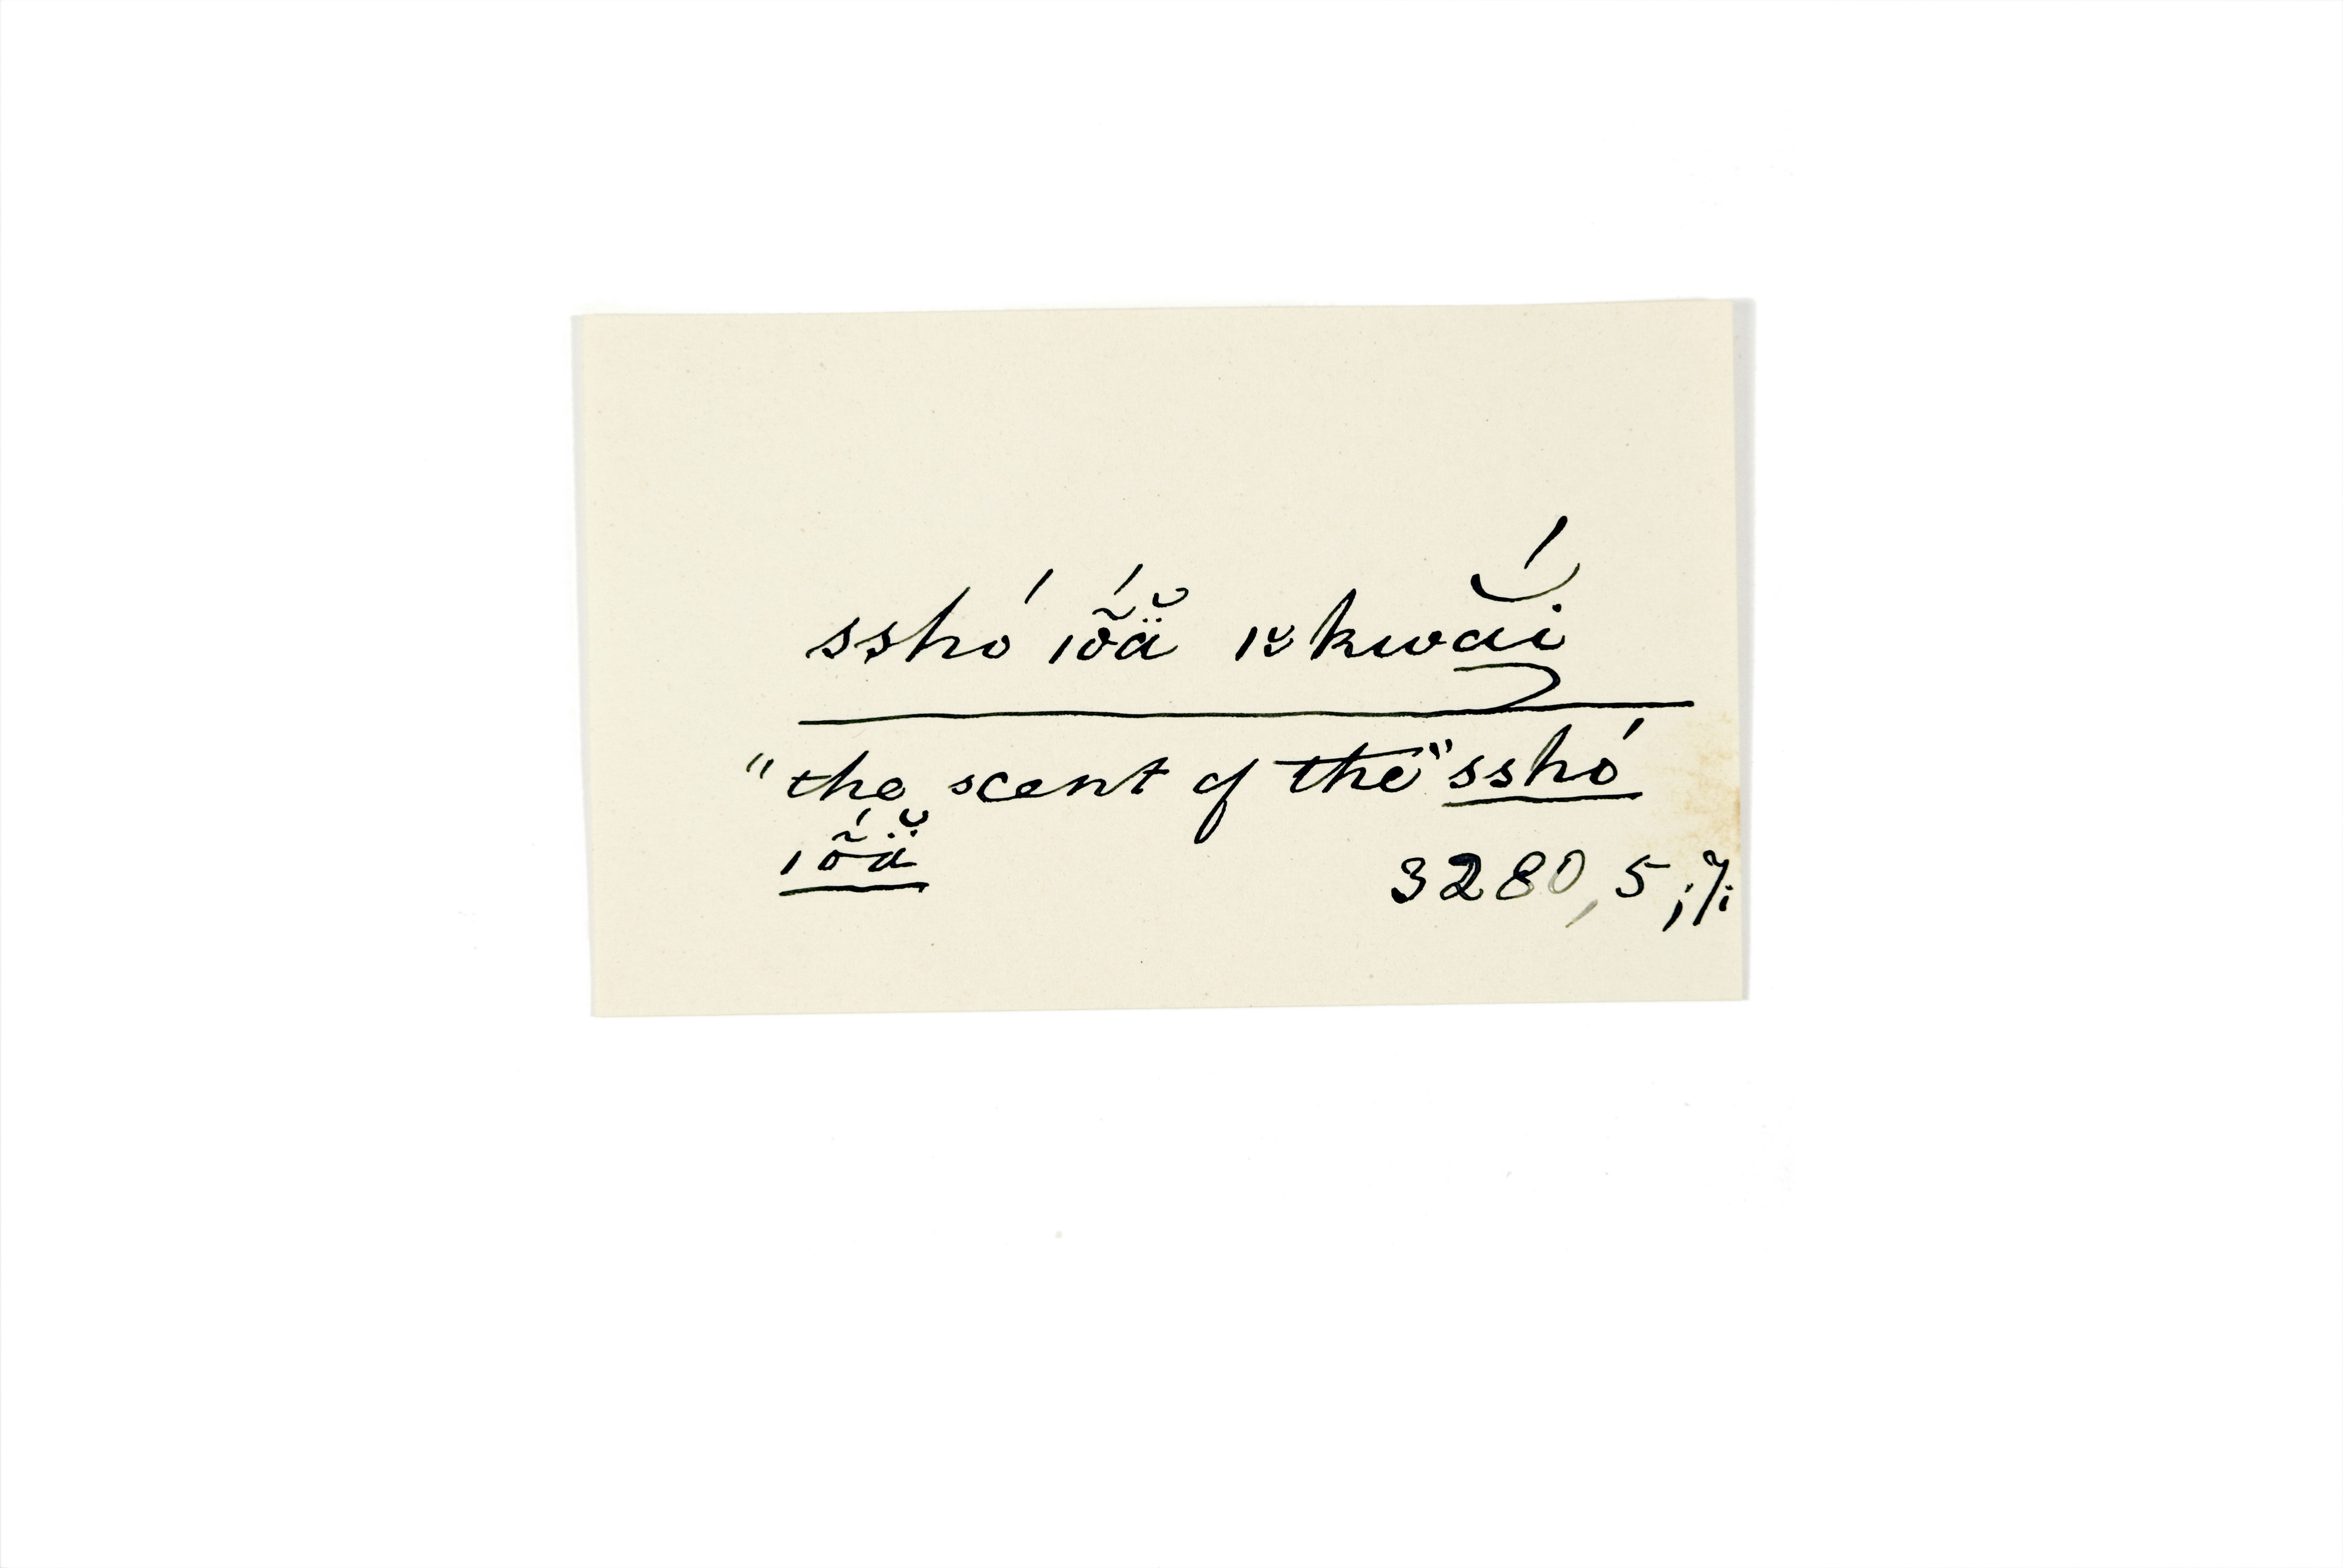 sshó ıṍä̆ ı̆kwá̆i
"the scent of the" sshó
ıṍä̆
3280, 5, ; 7: